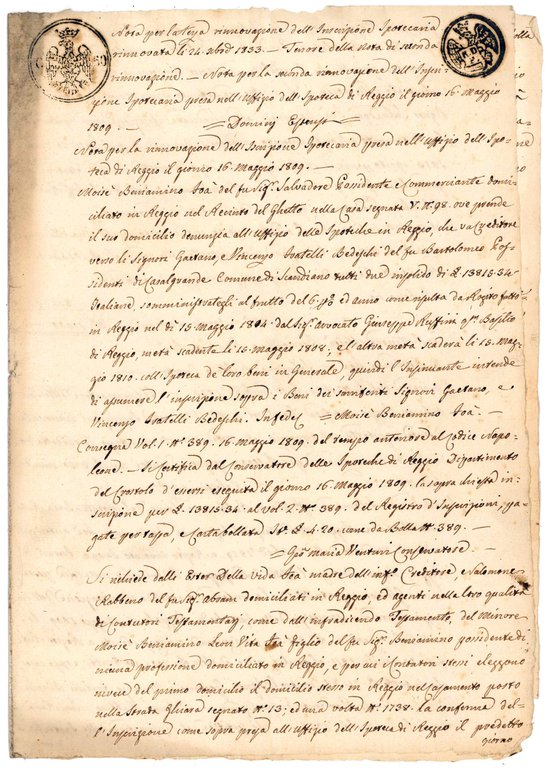 Nota per la terza rinnovazione dell'Inscrizione Ipotecaria
rinnovata li 24 9bre 1833. — Tenore della nota di seconda
rinnovazione. — Nota per la seconda rinnovazione dell'Inscri-
zione Ipotecaria presa nell'Uffizio dell'Ipoteca di Reggio il giorno 16 Maggio
1809. — = Dominj Estensi =
Nota per la rinnovazione dell'Inscrizione Ipotecaria presa nell'Uffizio dell'Ipo-
teca di Reggio il giorno 16. Maggio 1809. —
Moisè Beniamino Foà del fu Sigr. Salvadore Possidente e Commerciante domi-
ciliato in Reggio nel Recinto del Ghetto nella Casa segnata N.° 98. ove prende
il suo domicilio denunzia all'Uffizio delle Ipoteche in Reggio, che va Creditore
verso li Signori Gaetano, e Vincenzo fratelli Bedeschi del fu Bartolomeo Pos-
sidenti di Casalgrande Comune di Scandiano tutti due insolido di £ 13815.34
Italiane, somministrategli al frutto del 6. p% ed anno come risulta da Rogito fatto
in Reggio nel dì 15. Maggio 1804. dal Sig. Avvocato Giuseppe Ruffini qm. Basilio
di Reggio, metà scadente li 15. Maggio 1808; e l'altra metà scaderà li 15. Mag-
gio 1810. coll'Ipoteca de loro beni in Generale, quindi l'Insinuante intende
di assumere l'inscrizione sopra i Beni dei surriferiti Signori Gaetano, e
Vincenzo fratelli Bedeschi. In fede = Moisè Beniamino Foà. —
Consegna Vol. 1. N.° 389. 16. Maggio 1809. del tempo anteriore al Codice Napo-
leone. — Si Certifica dal Conservatore delle Ipoteche di Reggio Dipartimento
del Crostolo d'essersi eseguita il giorno 16 Maggio 1809. la sopra chiesta in-
scrizione per £ 13815.34. al Vol. 2. N.° 389. del Registro d'Inscrizioni, pa-
gate per tassa, e Carta bollata It. £. 4.20. come da Bolla N.° 389. —
= Gio. Maria Venturi Conservatore. —
Si richiede dalli Ester Della Vida Foà madre dell'inf. Creditore, e Salomone
Rabbeno del fu Sig. Abram domiciliati in Reggio, ed agenti nella loro qualità
di Contutori Testamentarj come dall'infradicendo Testamento, del Minore
Moisè Beniamino Leon Vita Foà figlio del fu Sig. Beniamino possidente di
niuna professione domiciliato in Reggio, e per cui i Contutori stessi eleggono
invece del primo domicilio il domicilio stesso in Reggio nel Casamento posto
nella Strada Ghiara segnato N.° 13; ed una volta N.° 1738. la conferma del-
l'Inscrizione come sopra presa all'Uffizio dell'Ipoteca di Reggio il predetto
giorno